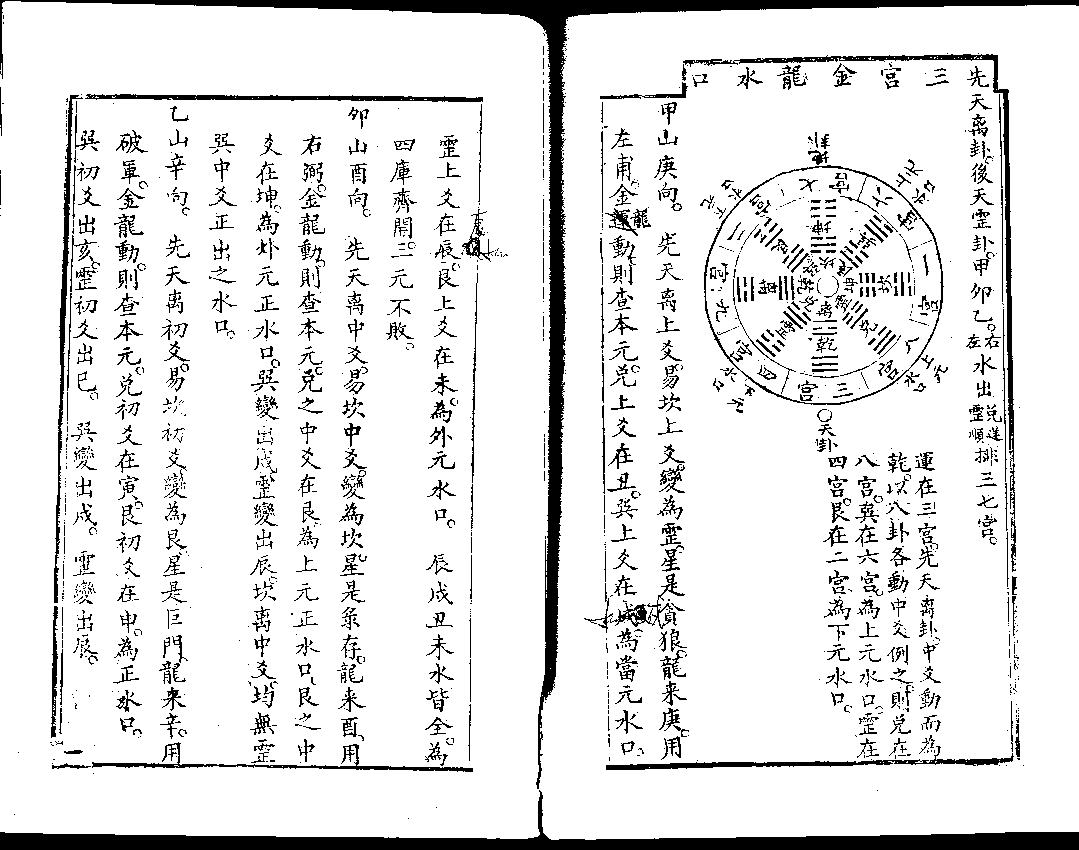 三宮金龍水口
先天离卦。後天霊卦。甲卯乙。右左水出兌逆霊順排三七宮。
運在三宮。先天离卦。中爻動而為
乾。以八卦各動中爻例之。則兌在
八宮。巽在六宮。為上元水口。霊在
四宮。艮在二宮。為下元水口。
天卦
地卦
上元水口
上元水口
下元水口
下元水口
甲山庚向。先天离上爻。易坎上爻。變為霊。星是貪狼。龍来庚。用
左甫。金龍動。則查本元。兌上爻在丑。巽上爻在為當元水口。
霊上爻在辰。艮上爻在未。為外元水口。辰戌丑未水皆全。為
四庫齊開。三元不敗。
卯山酉向。先天离中爻。易坎中爻。變為坎。星是彔存。龍来酉。用
右弼。金龍動。則查本元。兌之中爻在艮。為上元正水口。艮之中
爻在坤。為外元正水口。巽變出戌。霊變出辰。坎离中爻。均無霊
巽中爻正出之水口。
乙山辛向。先天离初爻。易坎初爻。變為艮。星是巨門。龍来辛。用
破軍。金龍動。則查本元。兌初爻在寅。艮初爻在申。為正水口。
巽初爻出亥。霊初爻出巳。巽變出戌。霊變出辰。
一